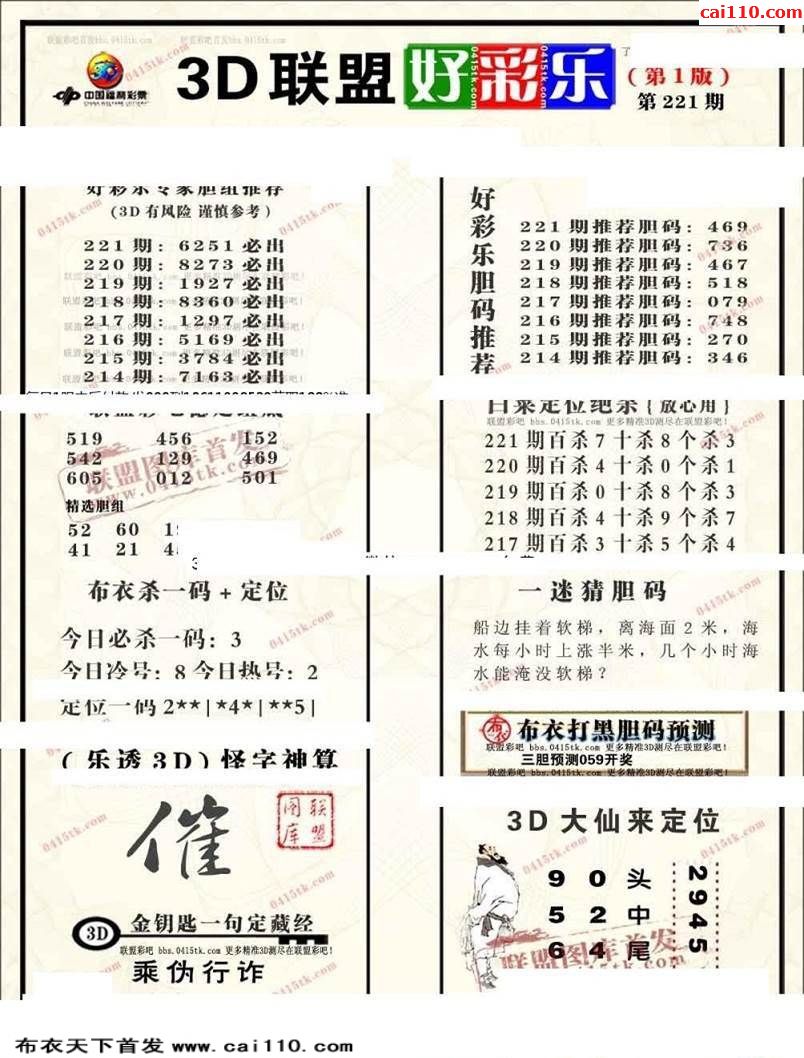 cai110.com
3D联盟好彩乐
(第1版)
第221期
中国福利彩票
CHINA WELFARE LOTTERY
好彩乐专家胆组推荐
(3D有风险 谨慎参考)
221期: 6251必出
220期: 8273必出
219期: 1927必出
218期: 8360必出
217期: 1297必出
216期: 5169必出
215期: 3784必出
214期: 7163必出
好彩乐胆码推荐
221期推荐胆码: 469
220期推荐胆码: 736
219期推荐胆码: 467
218期推荐胆码: 518
217期推荐胆码: 079
216期推荐胆码: 748
215期推荐胆码: 270
214期推荐胆码: 346
519 456 152
542 129 469
605 012 501
精选胆组
52 60
41 21
联盟图库首发
www.0415tk.com
白菜定位绝杀{放心用}
联盟彩吧 bbs.0415tk.com 更多精准3D测尽在联盟彩吧!
221期百杀7十杀8个杀3
220期百杀4十杀0个杀1
219期百杀0十杀8个杀3
218期百杀4十杀9个杀7
217期百杀3十杀5个杀4
布衣杀一码+定位
今日必杀一码: 3
今日冷号: 8 今日热号: 2
定位一码 2**|*4*|**5|
一迷猜胆码
船边挂着软梯，离海面2米，海
水每小时上涨半米，几个小时海
水能淹没软梯?
布衣打黑胆码预测
联盟彩吧 bbs.0415tk.com 更多精准3D测尽在联盟彩吧!
三胆预测059开奖
联盟彩吧 bbs.0415tk.com 更多精准3D测尽在联盟彩吧!
(乐透3D)怪字神算
催
联盟图库
3D 金钥匙一句定藏经
联盟彩吧 bbs.0415tk.com 更多精准3D测尽在联盟彩吧!
乘伪行诈
3D大仙来定位
9 0 头
5 2 中
6 4 尾
2945
联盟图库首发
www.0415tk.com
布衣天下首发 www.cai110.com